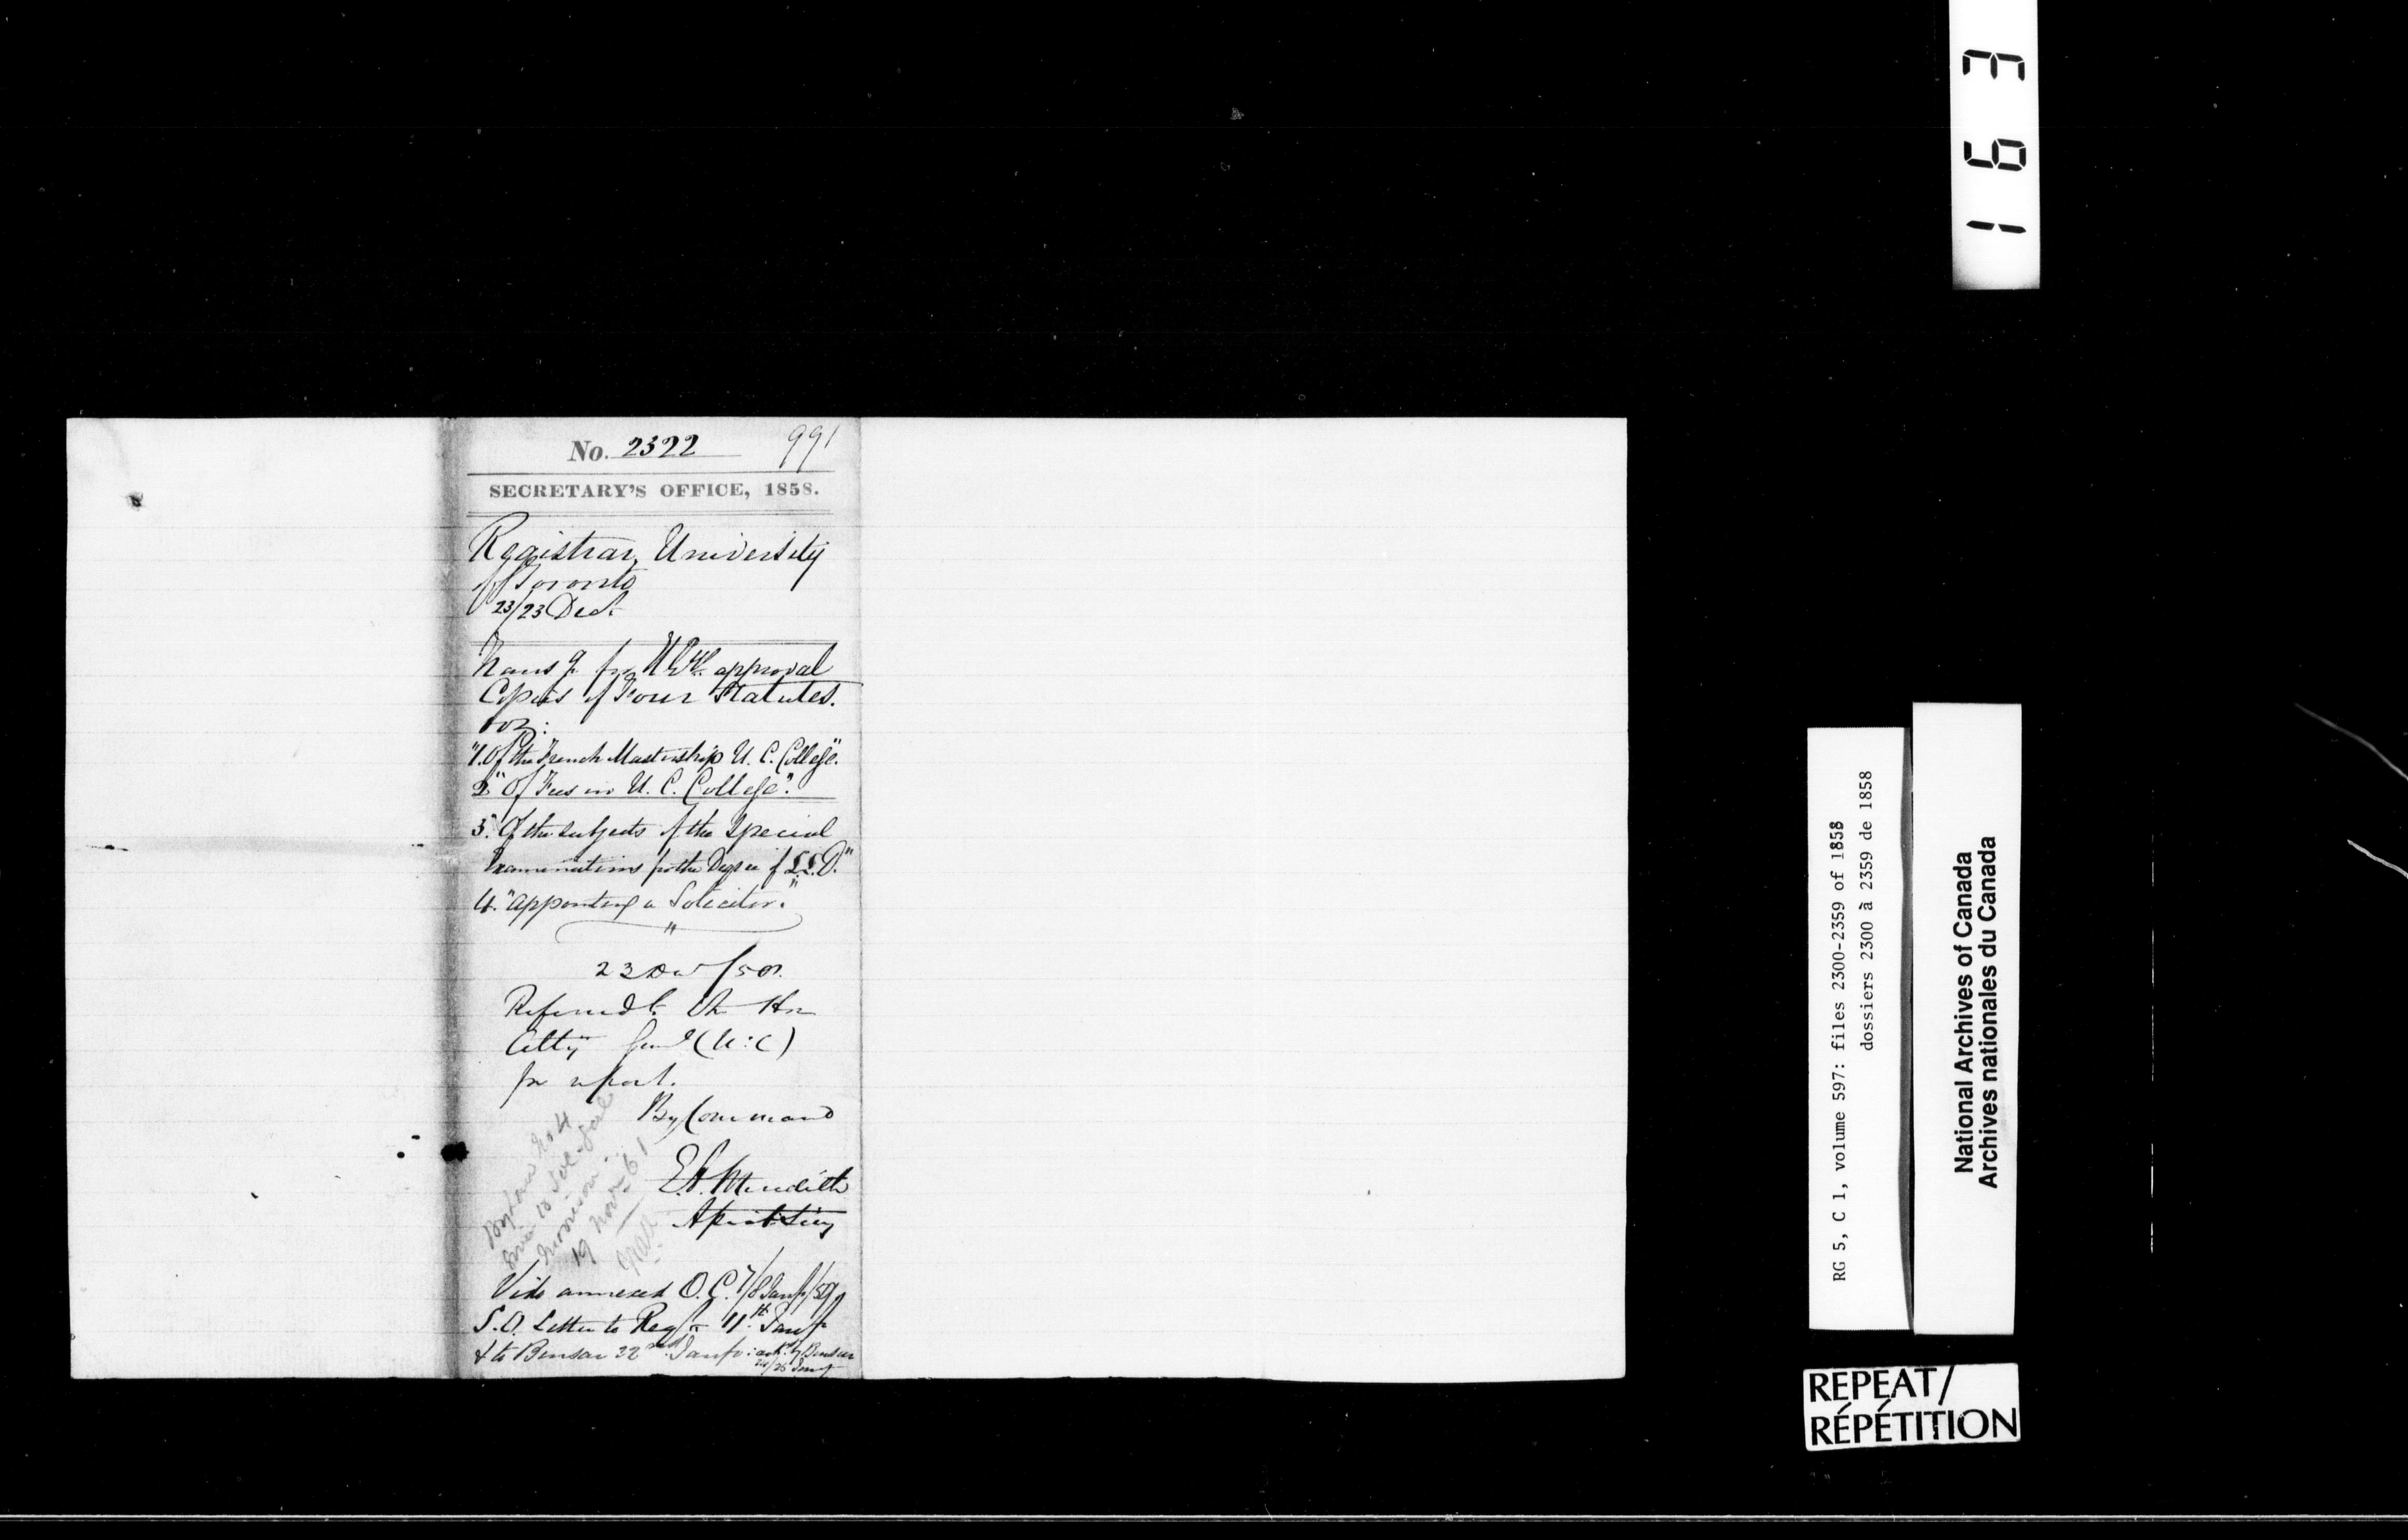 No. 2322
991
SECRETARY'S OFFICE, 1858.
Registrar, University
of Toronto
23/23 Decr
approval
Copies of Four Statutes.
viz:
"1. Of the French Mastership U. C. College".
2 "Of Fees in U. C. College".
3 "Of the subjects of the Special
Examinations for the Degree of LL.D."
4. "Appointing a Solicitor."
23 Dec /58.
Referred to the Hon
Atty Genl (U:C)
for report.
By Command
E.A. Meredith
Asst Secy
19 Novr 61
Vide annexed O.C. 7/8 Jany/59
S.O. Letter to Regr 11th Jany
& to Benson 22nd Jany: ackd by Benson
24/25 Jany
163
RG 5, C 1, volume 597: files 2300-2359 of 1858
dossiers 2300 à 2359 de 1858
National Archives of Canada
Archives nationales du Canada
REPEAT/
RÉPÉTITION